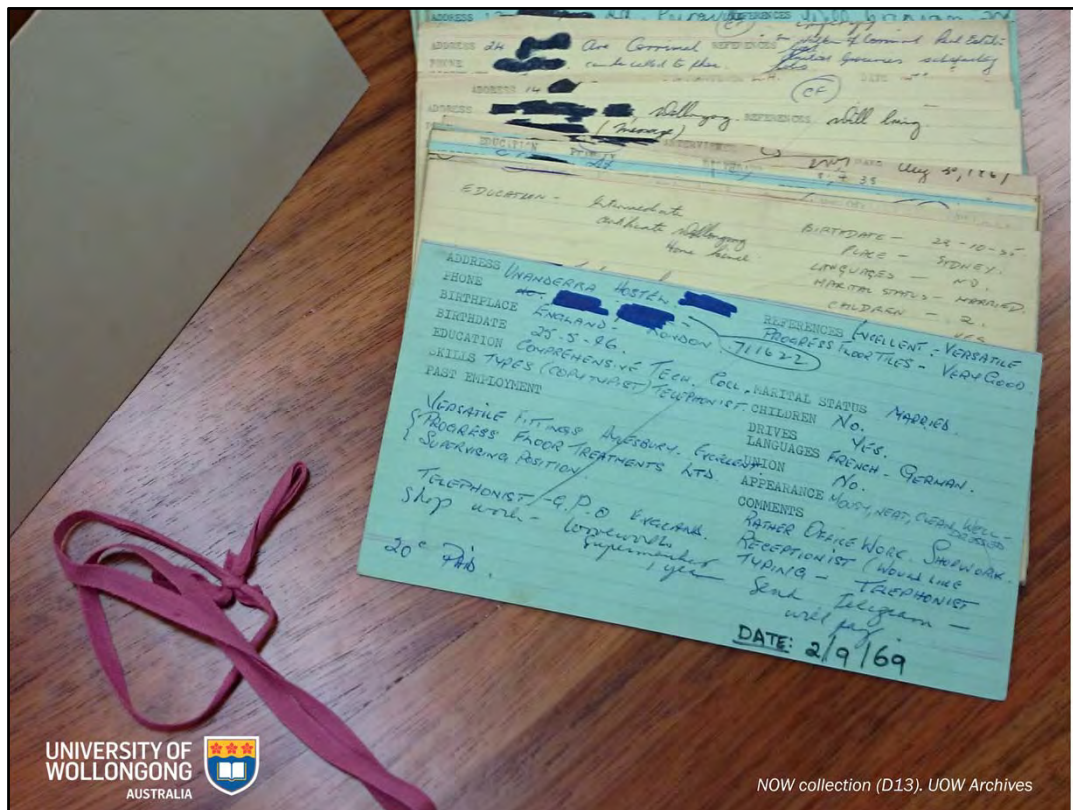 ADDRESS REFERENCES
ADDRESS 24 Ave Corrimal REFERENCES
PHONE can be called to phone
ADDRESS 14
(CF)
ADDRESS Wollongong REFERENCES Will bring
(message)
EDUCATION Aug 30, 1967
EDUCATION - Intermediate
certificate Wollongong
Home
BIRTHDATE -
PLACE - SYDNEY.
LANGUAGES - NO.
MARITAL STATUS - MARRIED.
CHILDREN - 2.
ADDRESS UNANDERRA HOSTEL
PHONE NO.
BIRTHPLACE ENGLAND. LONDON. 711622
BIRTHDATE 25-5-26.
EDUCATION COMPREHENSIVE TECH. COLL.
SKILLS TYPES (COPYTYPIST) TELEPHONIST.
PAST EMPLOYMENT
VERSATILE FITTINGS AYLESBURY. EXCELLENT.
PROGRESS FLOOR TREATMENTS LTD.
SUPERVISING POSITION.
TELEPHONIST - G.P.O ENGLAND.
Shop work - Woolworths
Supermarket
1 year
20c Paid.
REFERENCES EXCELLENT - VERSATILE
PROGRESS FLOOR TILES - VERY GOOD
MARITAL STATUS MARRIED.
CHILDREN NO.
DRIVES YES.
LANGUAGES FRENCH - GERMAN.
UNION NO.
APPEARANCE NEAT, CLEAN, WELL-
DRESSED
COMMENTS
RATHER OFFICE WORK. SHOPWORK.
RECEPTIONIST (WOULD LIKE
TYPING - TELEPHONIST
Send Telegram -
will pay.
DATE: 2/9/69
UNIVERSITY OF
WOLLONGONG
AUSTRALIA
NOW collection (D13). UOW Archives